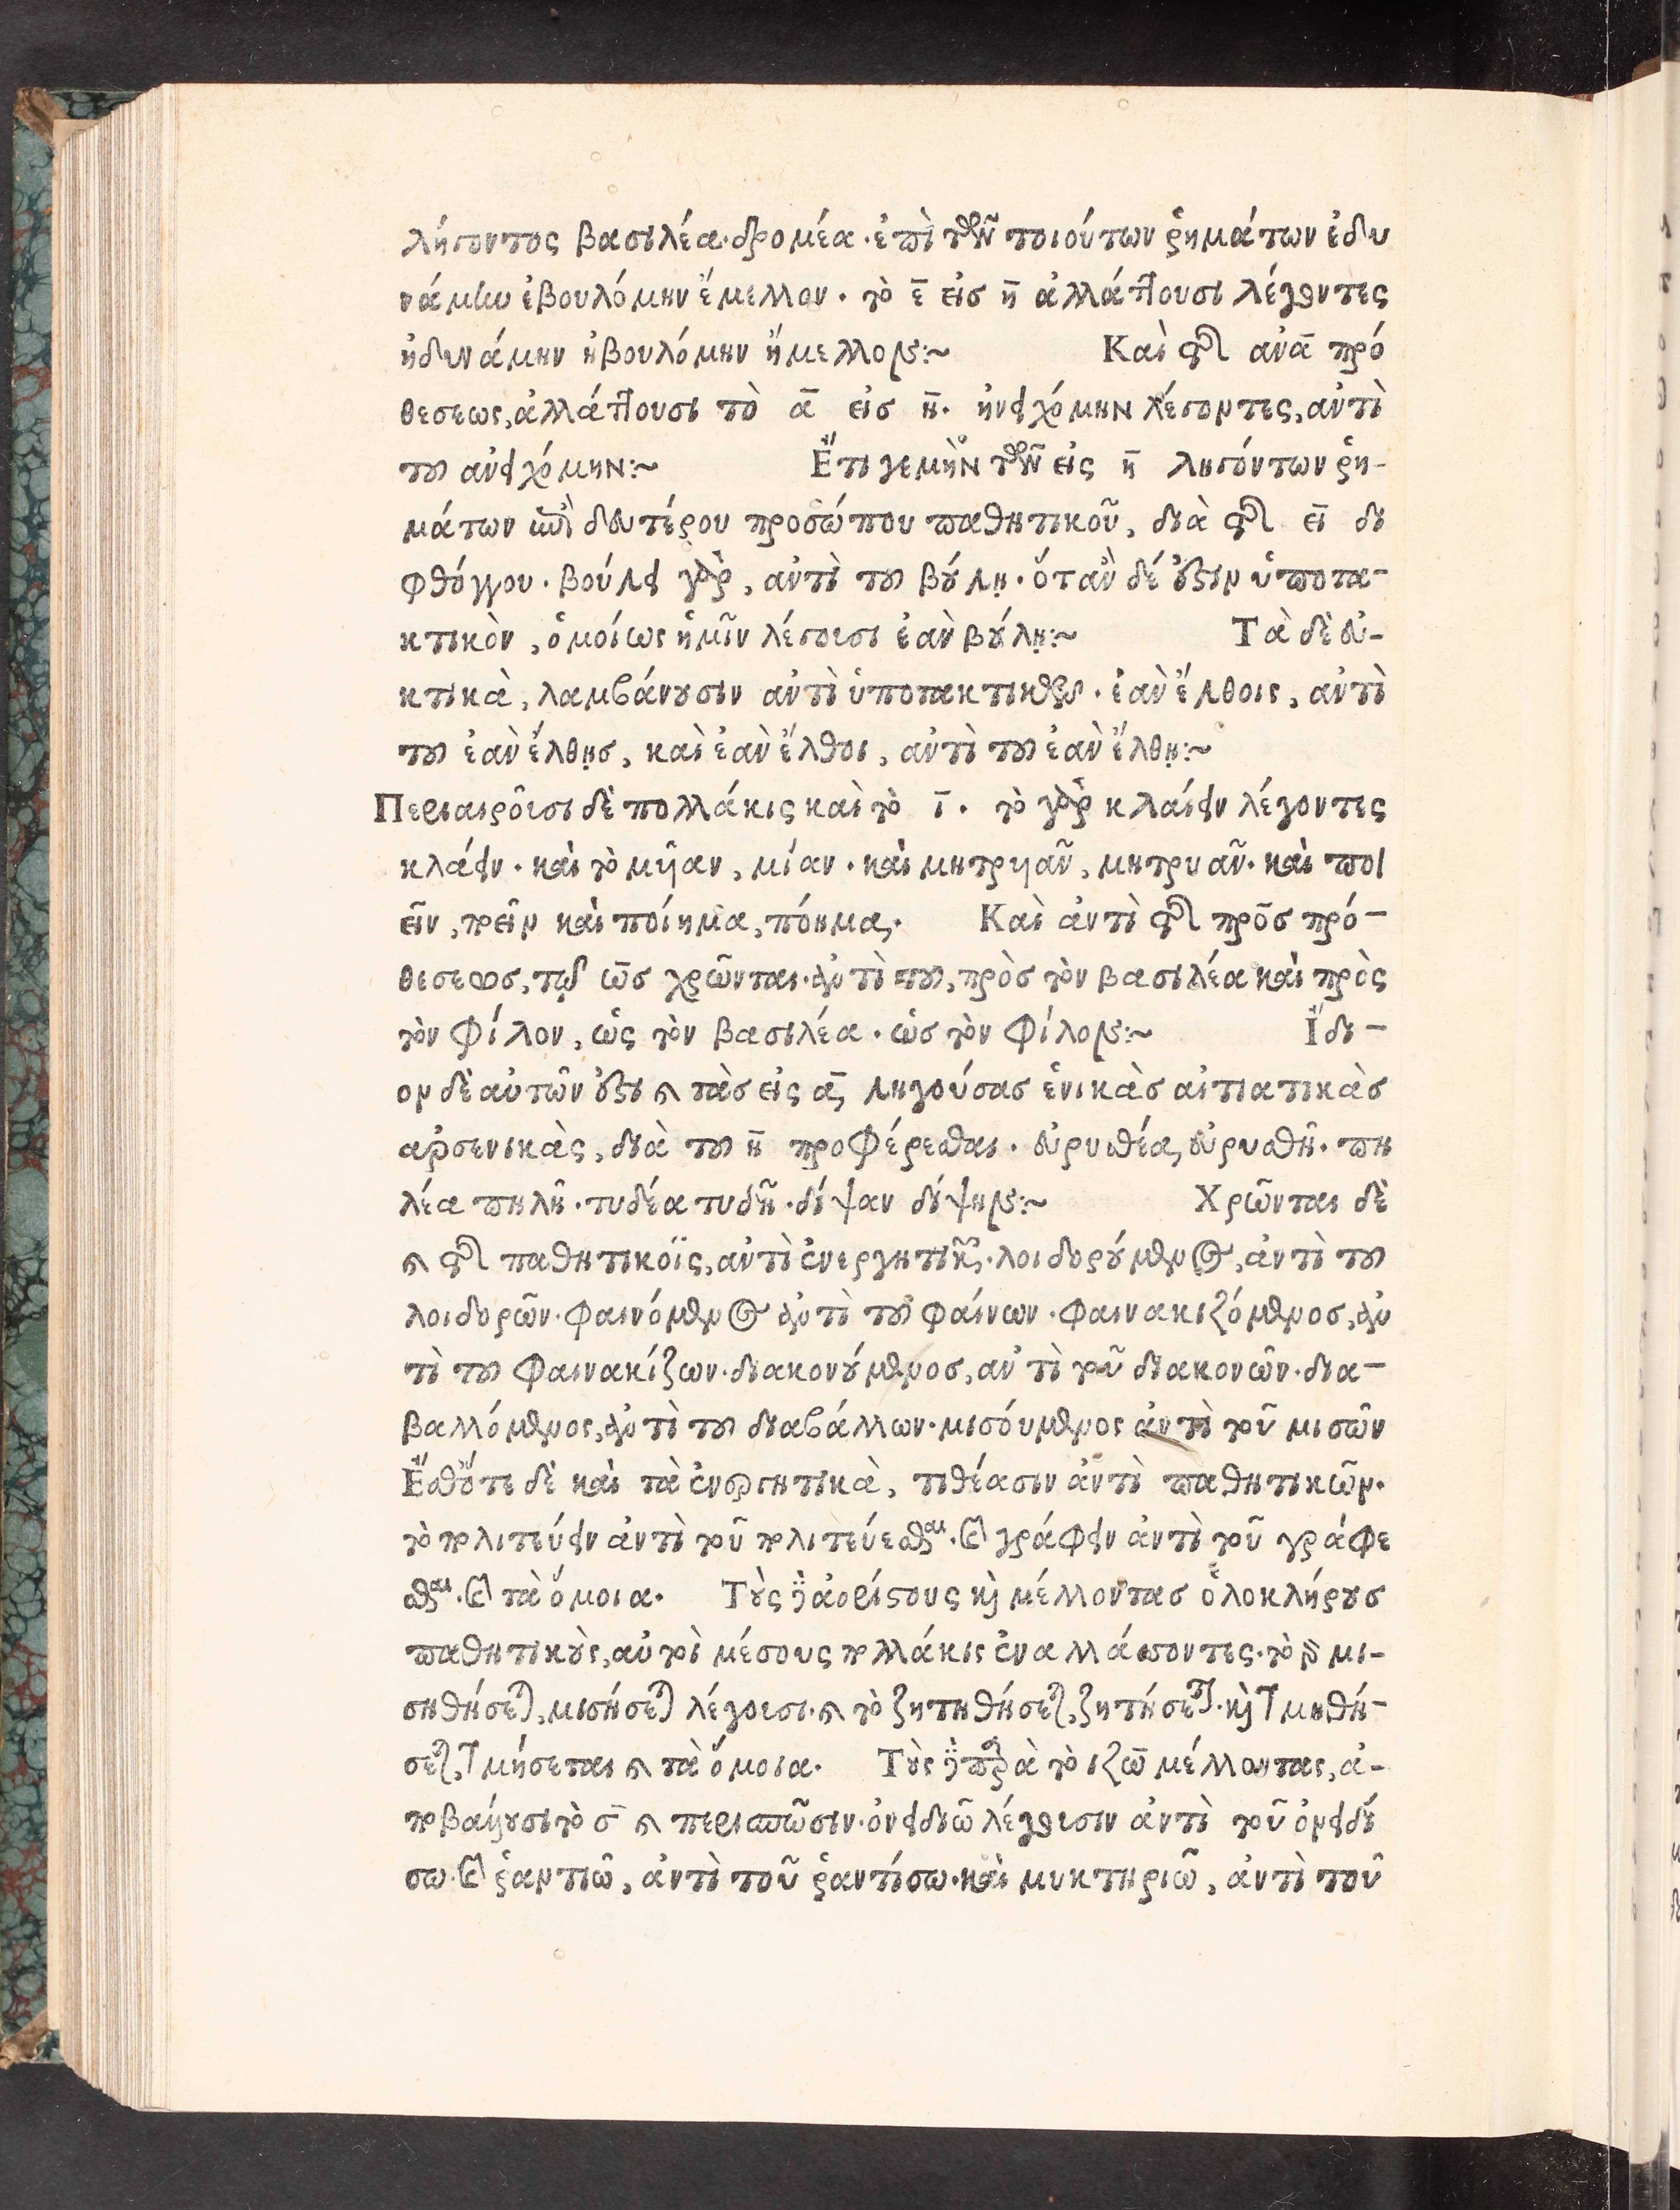 λήγοντος βασιλέα· δρομέα· ἐπὶ τῶν ποιούντων ῥημάτων ἐδυ
νάμην ἐβουλόμην ἔμελλον· τὸ ε̄ εἰσ η̄ ἀλλάττουσι λέγοντες
ἠδυνάμην ἠβουλόμην ἤμελλον:~ Καὶ ἐπὶ ἀνᾱ πρό
θεσεως, ἀλλάττουσι τὸ ᾱ εἰσ η̄. ἠνειχόμην λέγοντες, ἀντὶ
τοῦ ἀνειχόμην:~ Ἔτι γεμὴν τῶν εἰς η̄ ληγόντων ῥη-
μάτων ἐπὶ δευτέρου προσώπου παθητικοῦ, διὰ τῆς εῑ δι
φθόγγου. βούλει γὰρ, ἀντὶ τοῦ βούλη. ὅταν δέ ἐστιν ὑποτα-
κτικὸν, ὁμοίως ἡμῖν λέγουσι ἐὰν βούλῃ:~ Τὰ δὲ εὐ-
κτικὰ, λαμβάνουσιν ἀντὶ ὑποτακτικῶν. ἐὰν ἔλθοις, ἀντὶ
τοῦ ἐὰν ἔλθῃσ, καὶ ἐὰν ἔλθοι, ἀντὶ τοῦ ἐὰν ἔλθῃ:~
Περιαιροῦσι δὲ πολλάκις καὶ τὸ ῑ. τὸ γὰρ κλαίειν λέγοντες
κλάειν. καὶ τὸ μῆαν, μίαν. καὶ μητρυιᾶν, μητρυᾶν. καὶ ποι
εῖν, ποεῖν καὶ ποίημα, πόημα, Καὶ ἀντὶ τῆς πρὸσ πρό-
θεσεωσ, τῷ ὡσ χρῶνται. ἀντὶ τοῦ, πρὸσ τὸν βασιλέα καὶ πρὸς
τὸν φίλον, ὡς τὸν βασιλέα. ὡσ τὸν φίλον:~ Ἴδι-
ον δὲ αὐτῶν ἐστι καὶ τὰσ εἰς ᾱ, ληγούσασ ἑνικὰσ αἰτιατικὰσ
ἀρσενικὰς, διὰ τοῦ η̄ προφέρεσθαι. εὐρυσθέα, εὐρυσθῆ. πη
λέα πηλῆ. τυδέα τυδῆ. δίψαν δίψην:~ Χρῶνται δὲ
καὶ τοῖς παθητικοῖς, ἀντὶ ἐνεργητικῶν. λοιδορούμενος, ἀντὶ τοῦ
λοιδορῶν. φαινόμενος ἀντὶ τοῦ φαίνων. φαινακιζόμενοσ, ἀν
τὶ τοῦ φαινακίζων. διακονούμενοσ, ἀντὶ τοῦ διακονῶν. δια-
βαλλόμενος, ἀντὶ τοῦ διαβάλλων. μισόυμενος ἀντὶ τοῦ μισῶν
Ἔσθ ὅτε δὲ καὶ τὰ ἐνεργητικὰ, τιθέασιν ἀντὶ παθητικῶν.
τὸ πολιτεύειν ἀντὶ τοῦ πολιτεύεσθαι. καὶ γράφειν ἀντὶ τοῦ γράφε
σθαι. καὶ τὰ ὅμοια. Τοὺς δὲ ἀορίστους καὶ μέλλοντασ ὁλοκλήρουσ
παθητικοὺς, ἀντὶ μέσους πολλάκις ἐναλλάσσοντες. τὸ γὰρ μι-
σηθήσεται, μισήσεται λέγουσι. καὶ τὸ ζητηθήσεται, ζητήσεται. καὶ τιμηθή-
σεται, τιμήσεται καὶ τὰ ὅμοια. Τοὺς δὲ παρὰ τὸ ιζω̄ μέλλοντας, ἀ-
ποβάλλουσι τὸ σ̄ καὶ περισπῶσιν. ὀνειδιῶ λέγουσιν ἀντὶ τοῦ ὀνειδί
σω. καὶ ῥαντιῶ, ἀντὶ τοῦ ῥαντίσω. καὶ μυκτηριῶ, ἀντὶ τοῦ